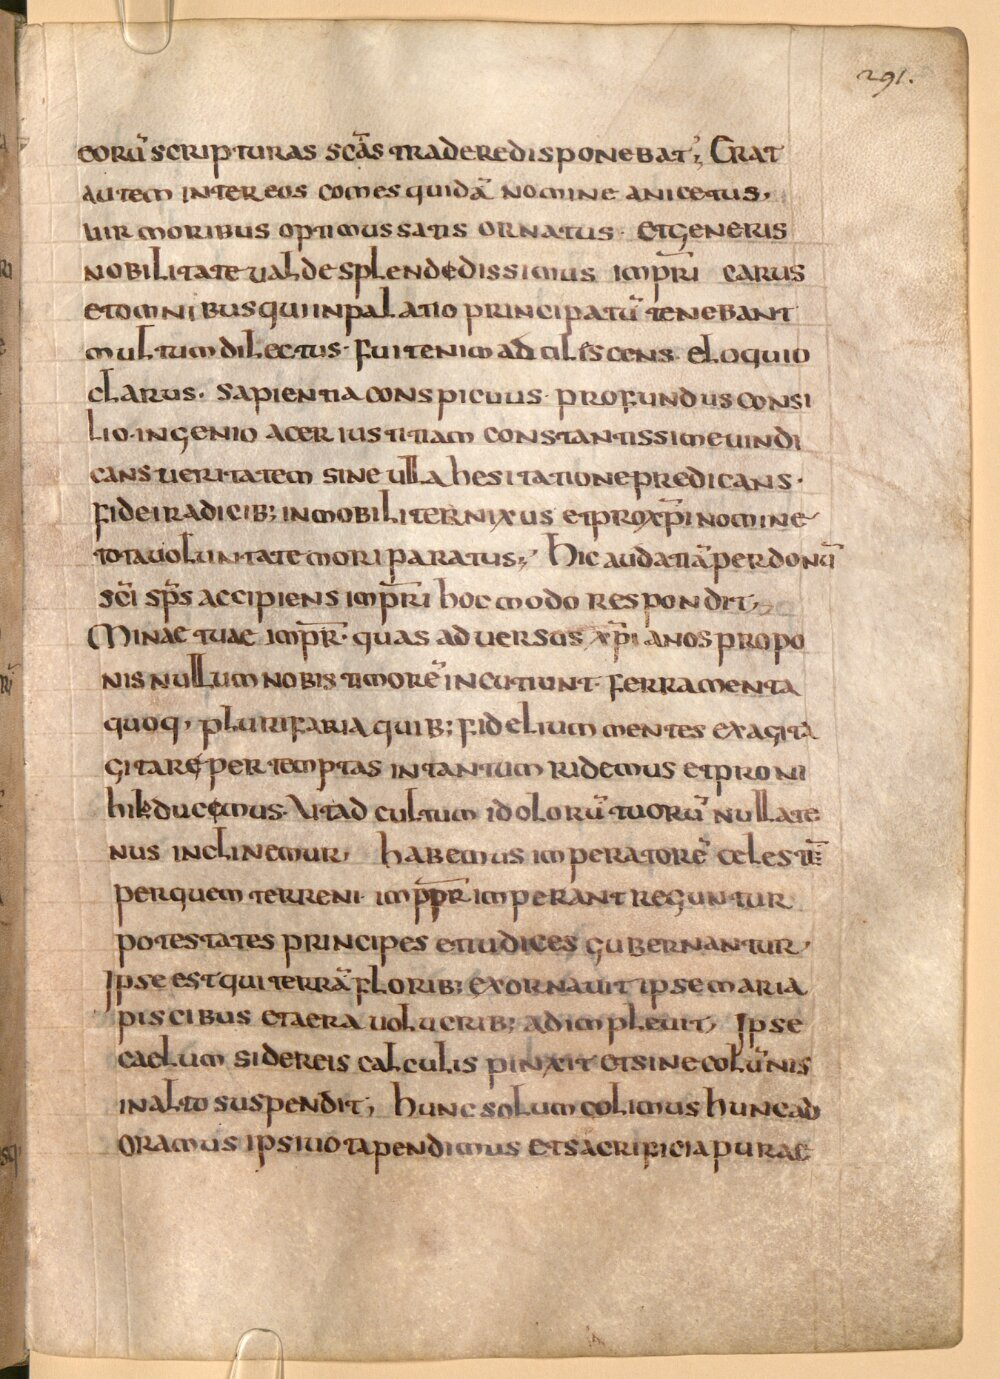 291.
eorū scripturas scās tradere disponebat; Erat
autem inter eos comes quidā nomine anicetus,
uir moribus optimus satis ornatus · et generis
nobilitate ualde splendedissimus imp̄ri carus
et omnibus qui in palatio principatū tenebant
multum dilectus · fuit enim adoliscens · eloquio
clarus · sapientia conspicuus · profundus consi
lio · ingenio acer iustitiam constantissime uindi
cans ueritatem sine ulla hesitatione predicans ·
fidei radicib; inmobiliter nixus et pro xp̄i nomine
tota uoluntate mori paratus; hic audatiā per donū
sc̄i sp̄s accipiens imp̄ri hoc modo respondit,
Minae tuae imp̄r · quas aduersus xp̄ianos propo
nis nullum nobis timorē incutiunt · ferramenta
quoq, plurifaria quib; fidelium mentes exagita
gitare pertemptas in tantum ridemus et pro ni
hil ducemus · Ut ad cultum idolorū tuorū nullate
nus inclinemur, habemus imperatorē celestē
per quem terreni · imp̄p̄r imperant reguntur
potestates principes et iudices gubernantur,
Ipse est qui terrā florib; exornauit ipse maria
piscibus et aera uolucrib; adimpleuit, Ipse
caelum sidereis calculis pinxit et sine colūnis
in alto suspendit, hunc solum colimus hunc ad
oramus ipsi uota pendimus et sacrificia purae